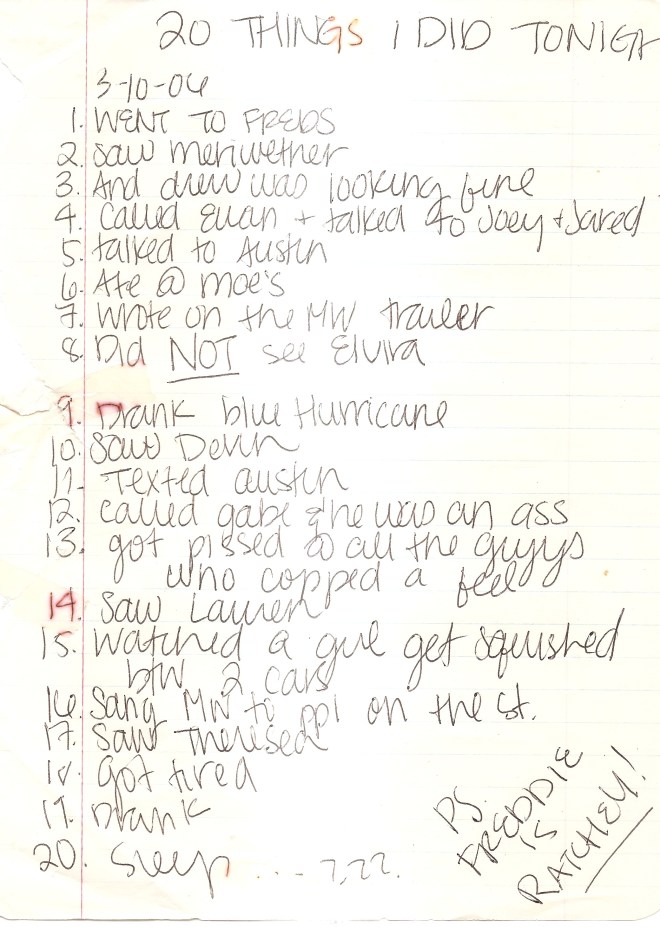 20 THINGS I DID TONIGH
3-10-06
1. WENT TO FREDS
2. Saw meriwether
3. And drew was looking fine
4. called Euan + talked to Joey + Jared
5. talked to Austin
6. Ate @ moe's
7. Wrote on the MW trailer
8. Did NOT see Elvira
9. Drank blue Hurricane
10. Saw Devin
11. Texted austin
12. called gabe & he was an ass
13. got pissed @ all the guyys
who copped a feel
14. Saw Lauren
15. Watched a girl get squished
btw 2 cars
16. Sang MW to ppl on the st.
17. Saw Theresea
18. Got tired
19. Drank
20. Sleep .... ?,??.
PS.
FREDDIE
IS
RATCHEY!